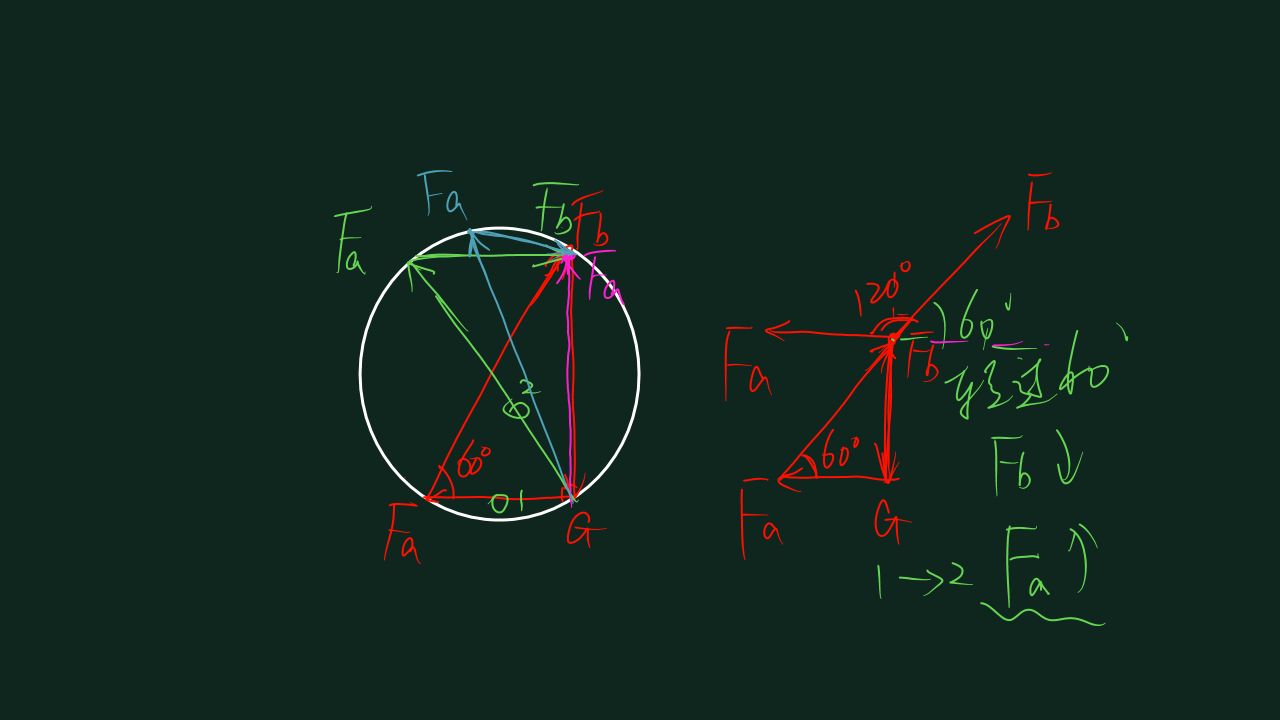 Fa
Fb
Fb
Fa
Fa
2
60°
1
Fa
G
Fb
120°
60°
Fa
Fb
60°
60°
Fb
Fa
G
1→2 Fa